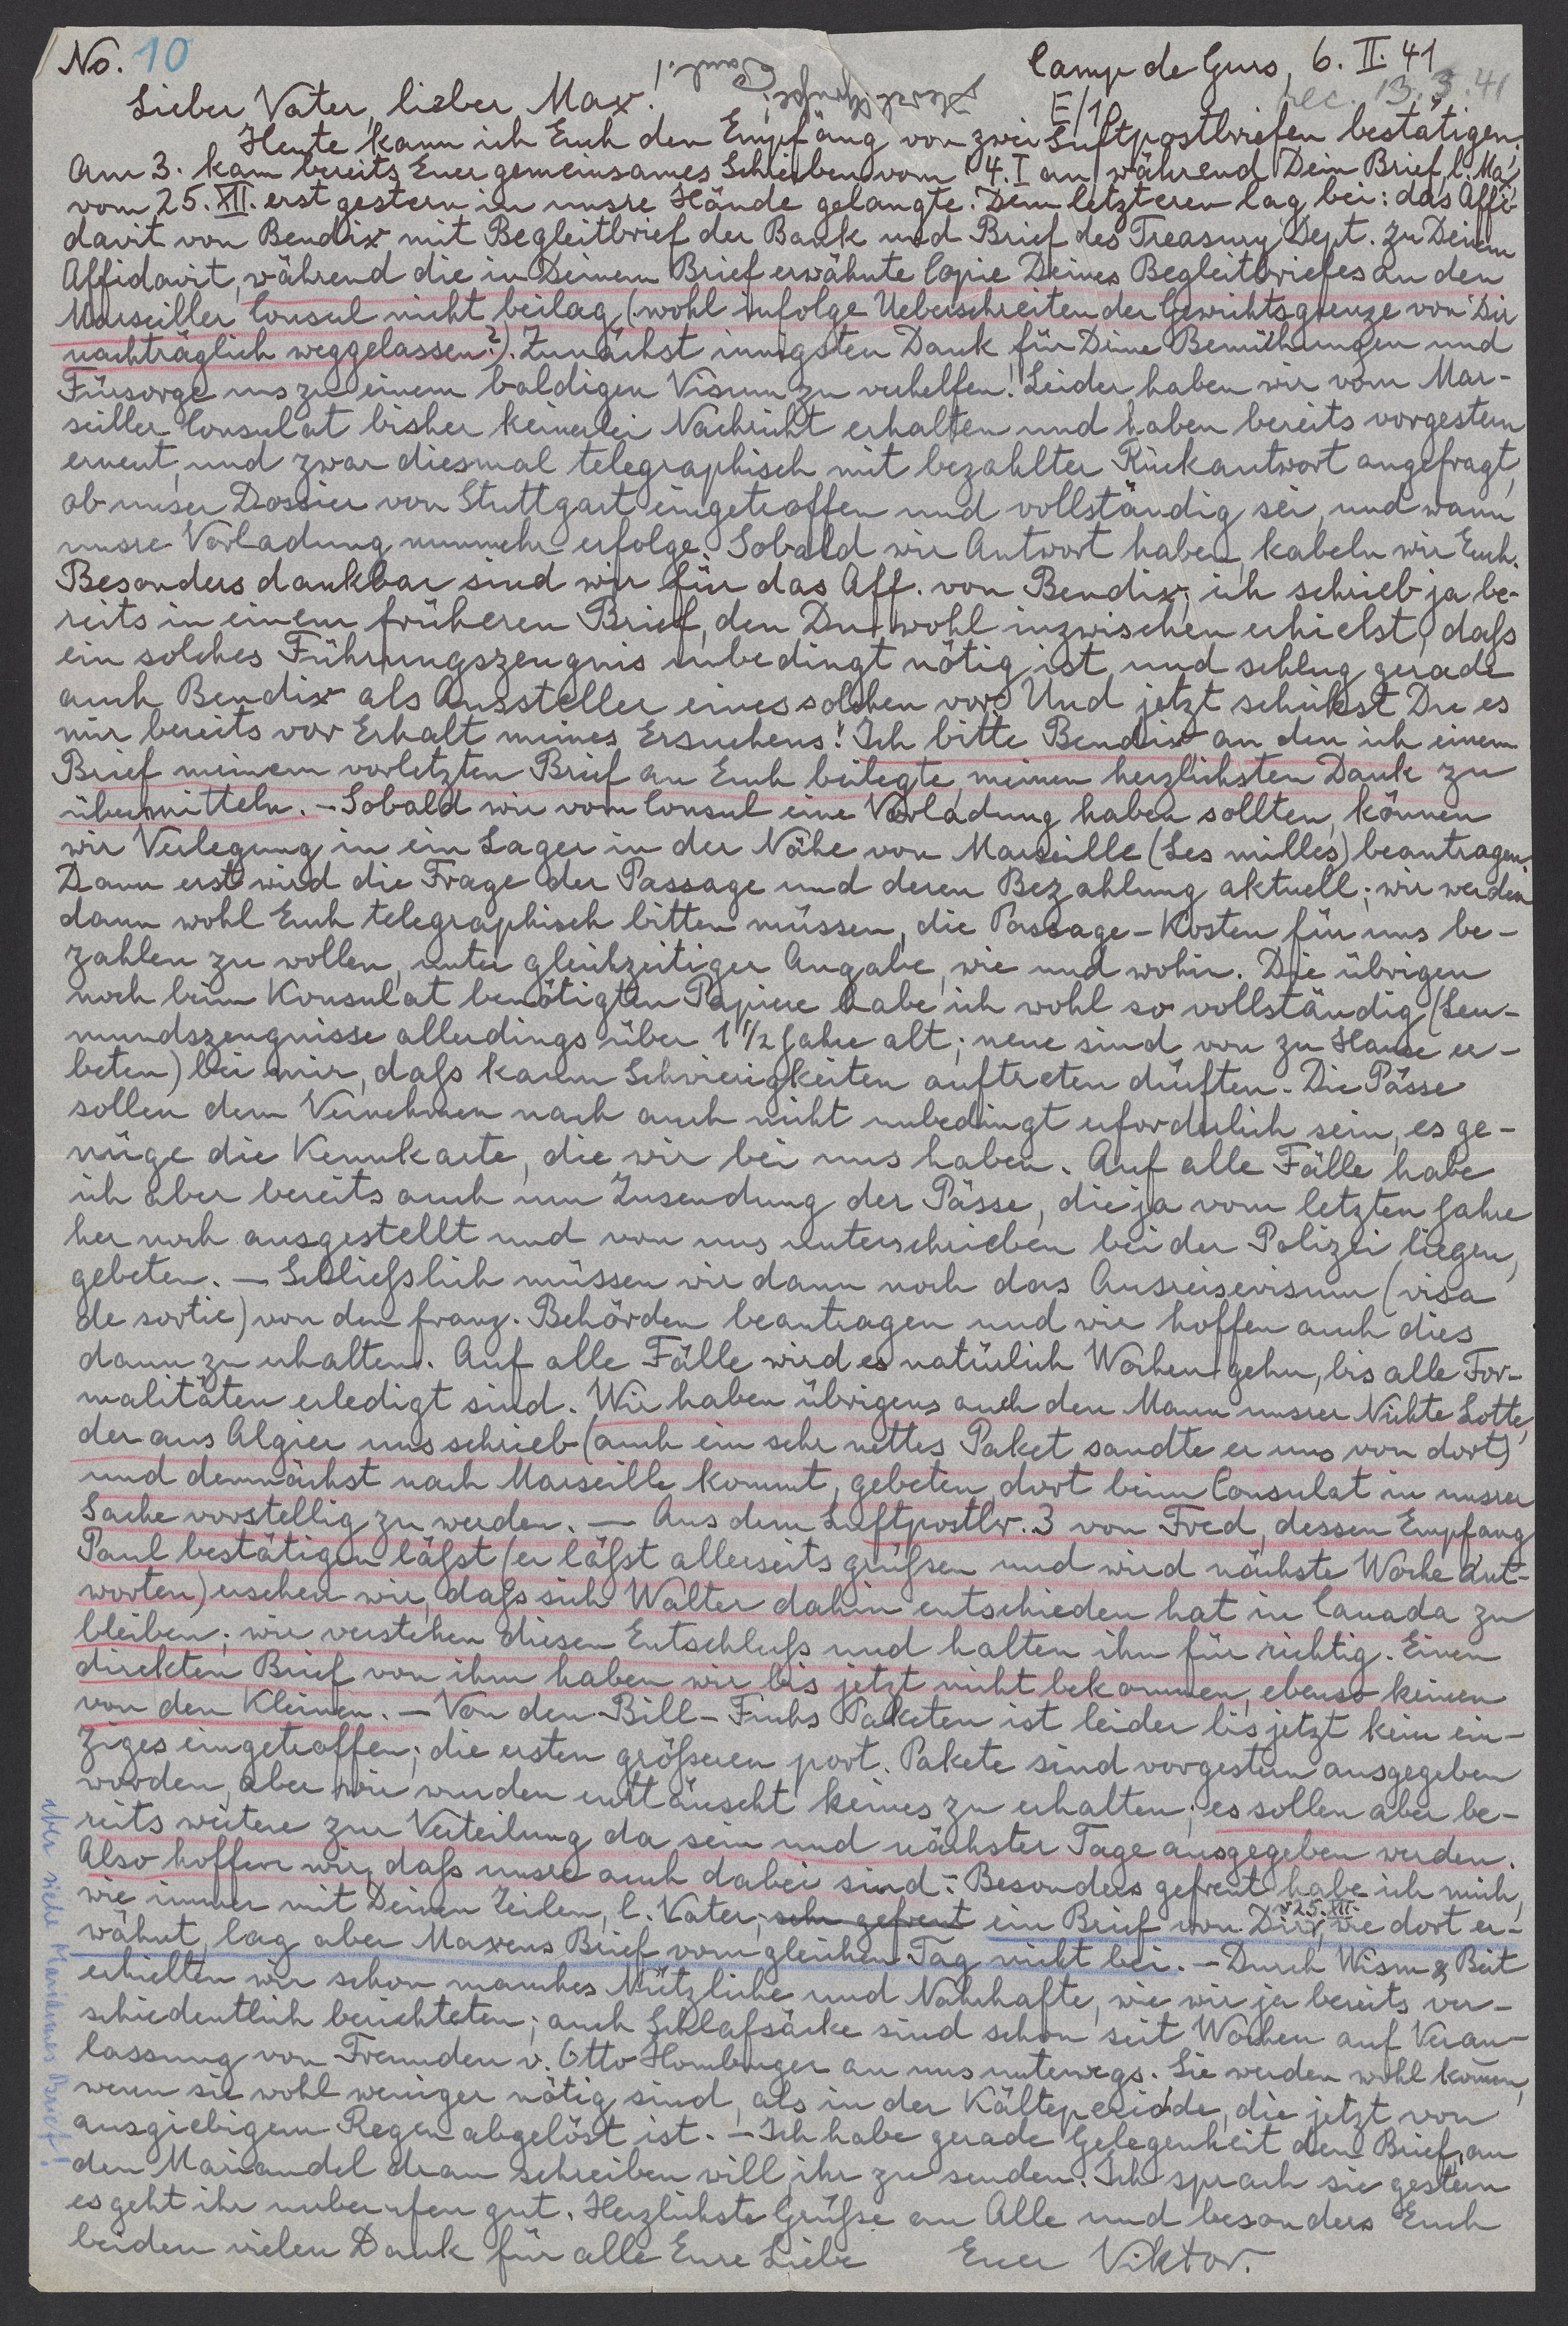 No. 10
Camp de Gurs, 6. II. 41
E/10
rec. 13.3.41
Herzl. Grüße! Paul.
Lieber Vater, lieber Max!
Heute kann ich Euch den Empfang von zwei Luftpostbriefen bestätigen.
Am 3. kam bereits Euer gemeinsames Schreiben vom 4. I an, während Dein Brief, l. Max,
vom 25. XII. erst gestern in unsre Hände gelangte. Dem letzteren lag bei: das Affi-
davit von Bendix mit Begleitbrief der Bank und Brief des Treasury Dept. zu Deinem
Affidavit, während die in Deinem Brief erwähnte Copie Deines Begleitbriefes an den
Marseiller Consul nicht beilag, (wohl infolge Ueberschreiten der Gewichtsgrenze von Dir
nachträglich weggelassen?). Zunächst innigsten Dank für Deine Bemühungen und
Fürsorge uns zu einem baldigen Visum zu verhelfen! Leider haben wir vom Mar-
seiller Consulat bisher keinerlei Nachricht erhalten und haben bereits vorgestern
erneut, und zwar diesmal telegraphisch mit bezahlter Rückantwort angefragt,
ob unser Dossier von Stuttgart eingetroffen und vollständig sei, und wann
unsre Vorladung nunmehr erfolge. Sobald wir Antwort haben, kabeln wir Euch.
Besonders dankbar sind wir für das Aff. von Bendix; ich schrieb ja be-
reits in einem früheren Brief, den Du wohl inzwischen erhielst, daß
ein solches Führungszeugnis unbedingt nötig ist und schlug gerade
auch Bendix als Aussteller eines solchen vor. Und jetzt schickst Du es
mir bereits vor Erhalt meines Ersuchens! Ich bitte Bendix an den ich einem
Brief meinem vorletzten Brief an Euch beilegte, meinen herzlichsten Dank zu
übermitteln. – Sobald wir vom Consul eine Vorladung haben sollten, können
wir Verlegung in ein Lager in der Nähe von Marseille (Les milles) beantragen.
Dann erst wird die Frage der Passage und deren Bezahlung aktuell; wir werden
dann wohl Euch telegraphisch bitten müssen, die Passage-Kosten für uns be-
zahlen zu wollen, unter gleichzeitiger Angabe, wie und wohin. Die übrigen
noch beim Konsulat benötigten Papiere habe ich wohl so vollständig (Leu-
mundszeugnisse allerdings über 1 1/2 Jahre alt; neue sind von zu Hause er-
beten) bei mir, daß kaum Schwierigkeiten auftreten dürften. Die Pässe
sollen dem Vernehmen nach auch nicht unbedingt erforderlich sein, es ge-
nüge die Kennkarte, die wir bei uns haben. Auf alle Fälle habe
ich aber bereits auch um Zusendung der Pässe, die ja vom letzten Jahre
her noch ausgestellt und von uns unterschrieben bei der Polizei liegen,
gebeten. – Schließlich müssen wir dann noch das Ausreisevisum (visa
de sortie) von den franz. Behörden beantragen und wir hoffen auch dies
dann zu erhalten. Auf alle Fälle wird es natürlich Wochen gehn, bis alle For-
malitäten erledigt sind. Wir haben übrigens auch den Mann unsrer Nichte Lotte,
der aus Algier uns schrieb (auch ein sehr nettes Paket sandte er uns von dort)
und demnächst nach Marseille kommt, gebeten, dort beim Consulat in unsrer
Sache vorstellig zu werden. – Aus dem Luftpostbr. 3 von Fred, dessen Empfang
Paul bestätigen läßt (er läßt allerseits grüßen und wird nächste Woche ant-
worten) ersehen wir, daß sich Walter dahin entschieden hat in Canada zu
bleiben; wir verstehen diesen Entschluß und halten ihn für richtig. Einen
direkten Brief von ihm haben wir bis jetzt nicht bekommen, ebenso keinen
von den Kleinen. – Von den Bill-Fuchs Paketen ist leider bis jetzt kein ein-
ziges eingetroffen; die ersten größeren port. Pakete sind vorgestern ausgegeben
worden, aber wir wurden enttäuscht keines zu erhalten; es sollen aber be-
reits weitere zur Verteilung da sein und nächster Tage ausgegeben werden.
Also hoffen wir, daß unsre auch dabei sind. – Besonders gefreut habe ich mich,
wie immer mit Deinen Zeilen, l. Vater; sehr gefreut ein Brief von Dir v. 25. XII., wie dort er-
wähnt, lag aber Maxens Brief vom gleichen Tag nicht bei. – Durch Wism & Beit
erhielten wir schon manches Nützliche und Nahrhafte, wie wir ja bereits ver-
schiedentlich berichteten; auch Schlafsäcke sind schon seit Wochen auf Veran-
lassung von Freunden v. Otto Homburger an uns unterwegs. Sie werden wohl komen,
wenn sie wohl weniger nötig sind, als in der Kälteperiode, die jetzt von
ausgiebigem Regen abgelöst ist. – Ich habe gerade Gelegenheit den Brief, an
den Mariandel dran schreiben will, ihr zu senden. Ich sprach sie gestern
es geht ihr unberufen gut. Herzlichste Grüße an Alle und besonders Euch
beiden vielen Dank für alle Eure Liebe Euer Viktor.
aber siehe Mariannes Brief!